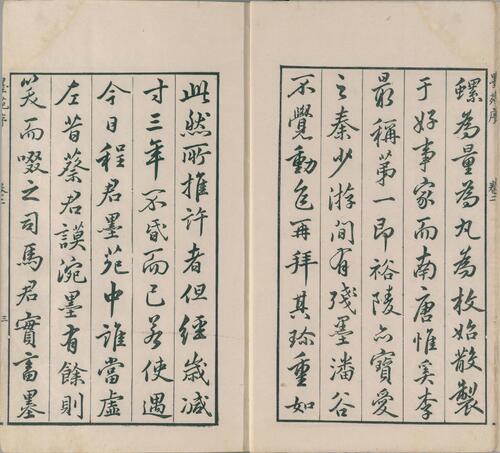 墨苑序 卷二
螺為量為丸為枚始散製
于好事家而南唐惟奚李
最稱第一即裕陵亦寶愛
之秦少游間有殘墨潘谷
不覺動色再拜其珍重如
此然所推許者但經歲減
寸三年不昏而已若使遇
今日程君墨苑中誰當虛
左昔蔡君謨涴墨有餘則
笑而啜之司馬君實畜墨
墨苑序 三